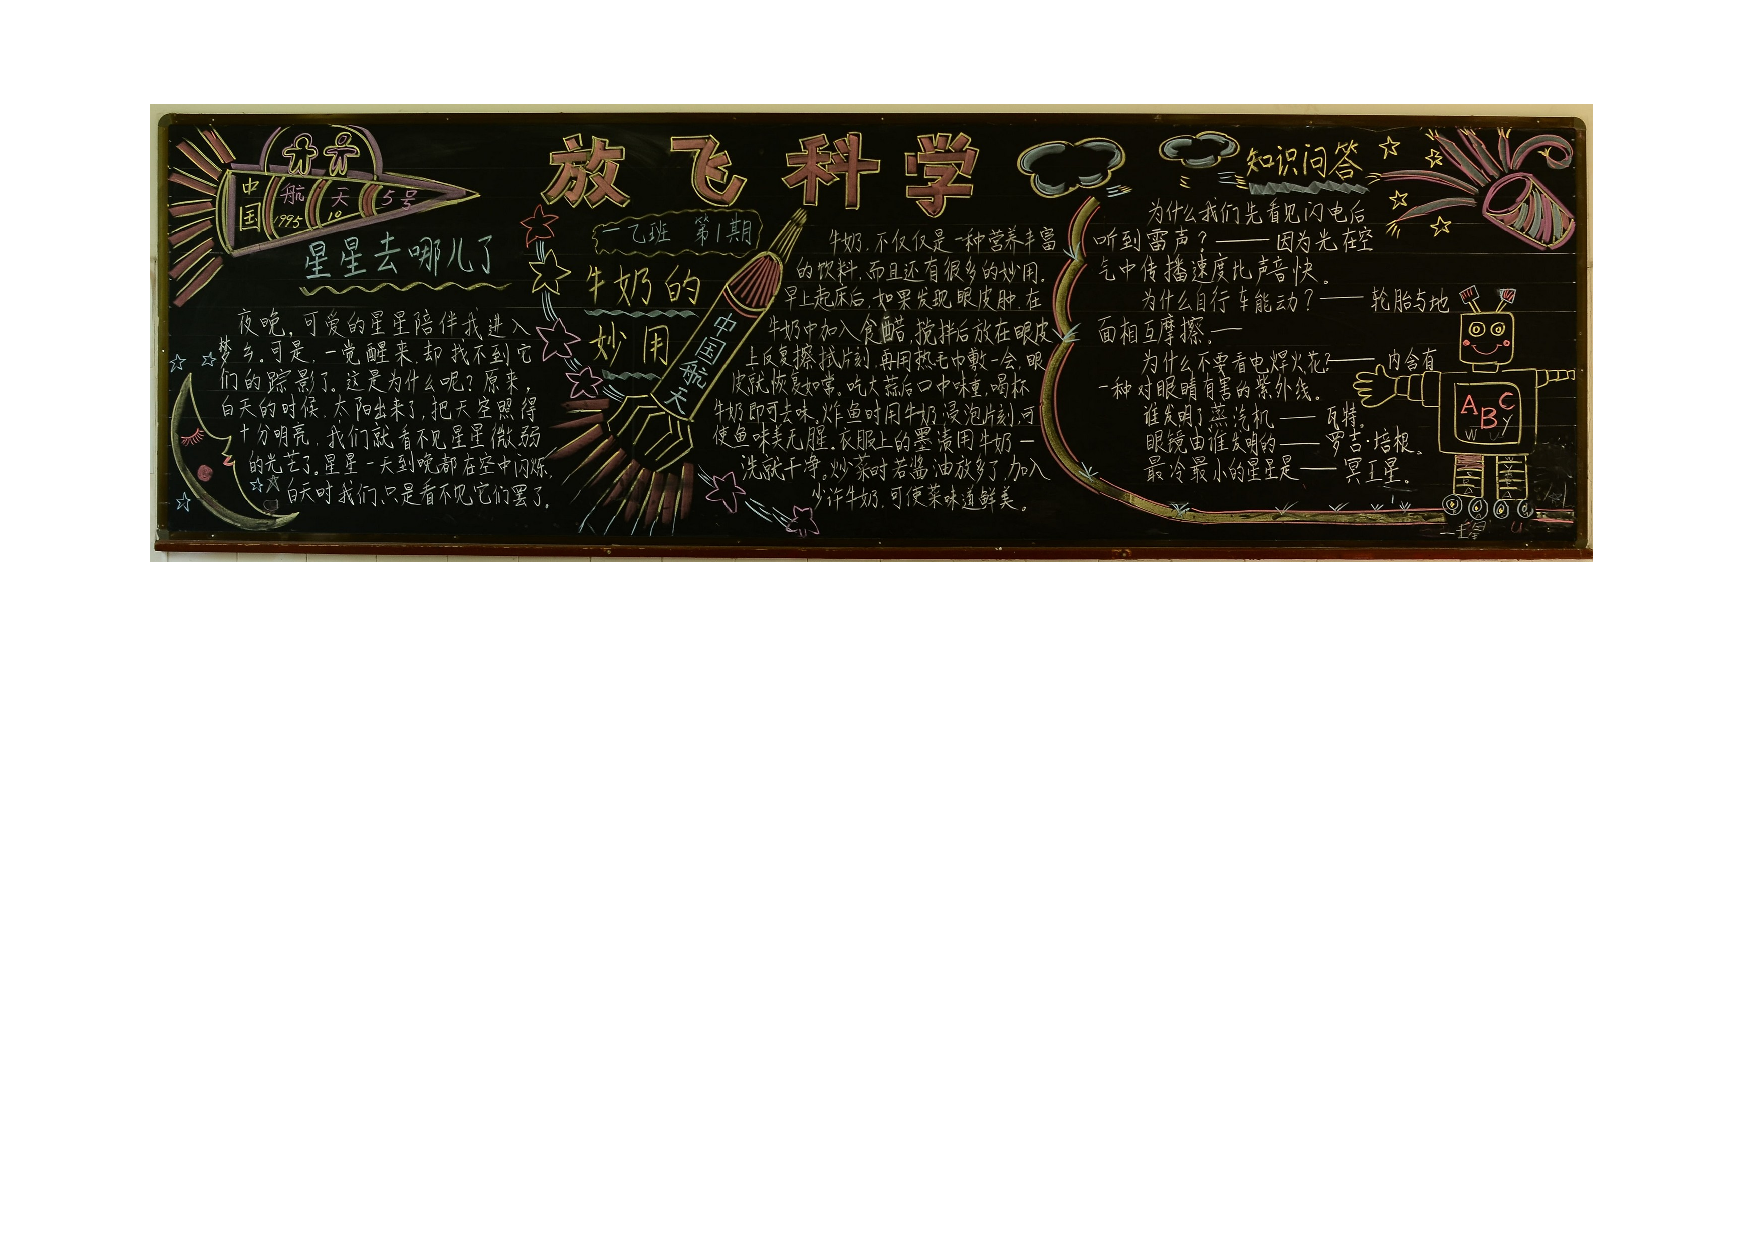 放飞科学
一乙班 第1期
中国
航天5号
1995 10
星星去哪儿了
夜晚，可爱的星星陪伴我进入
梦乡。可是，一觉醒来，却找不到它
们的踪影了。这是为什么呢？原来，
白天的时候，太阳出来了，把天空照得
十分明亮，我们就看不见星星微弱
的光芒了。星星一天到晚都在空中闪烁，
白天时我们只是看不见它们罢了。
牛奶的
妙用
中国航天
牛奶，不仅仅是一种营养丰富
的饮料，而且还有很多的妙用。
早上起床后，如果发现眼皮肿，在
牛奶中加入食醋，搅拌后放在眼皮
上反复擦拭片刻，再用热毛巾敷一会，眼
皮就恢复如常。吃大蒜后口中味重，喝杯
牛奶即可去味。炸鱼时用牛奶浸泡片刻，可
使鱼味美无腥。衣服上的墨渍用牛奶一
洗就干净。炒菜时若酱油放多了，加入
少许牛奶，可使菜味道鲜美。
知识问答
为什么我们先看见闪电后
听到雷声？——因为光在空
气中传播速度比声音快。
为什么自行车能动？——轮胎与地
面相互摩擦——
为什么不要看电焊火花？——内含有
一种对眼睛有害的紫外线。
谁发明了蒸汽机——瓦特。
眼镜由谁发明的——罗吉·培根。
最冷最小的星星是——冥王星。
ABC
W Y